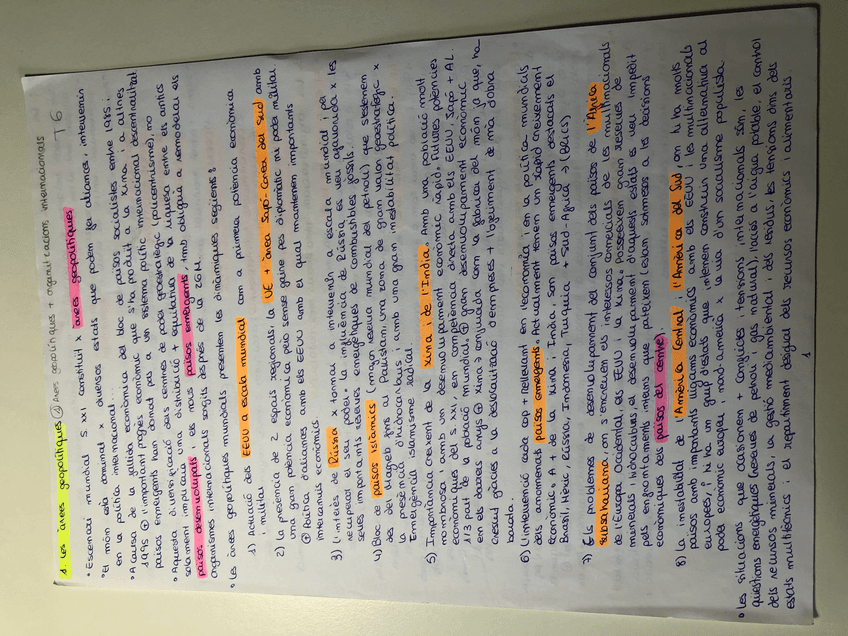 ① Àrees geopolítiques + organitzacions internacionals
T6
1. Les àrees geopolítiques
• Escenari mundial S XXI constituït x àrees geopolítiques
• El món està dominat x diversos estats que poden fer aliances, intervenir
en la política internacional.
• A causa de la fallida econòmica del bloc de països socialistes entre 1989 i
1995 ⊕ l'important progrés econòmic que s'ha produït a la Xina i a altres
països emergents han donat pas a un sistema polític internacional descentralitzat
• Aquesta diversificació dels centres de poder geoestratègic (policentrisme), no
solament implica una distribució + equitativa de la riquesa entre els antics
països desenvolupats i els nous països emergents, tmb obligarà a remodelar els
organismes internacionals sorgits després de la 2GM.
• Les àrees geopolítiques mundials presenten les dinàmiques següents:
1) Actuació dels EEUU a escala mundial com a primera potència econòmica
i militar.
2) La presència de 2 espais regionals: la UE + àrea Japó-Corea del Sud amb
una gran potència econòmica però sense gaire pes diplomàtic ni poder militar.
⊕ Política d'aliances amb els EEUU amb el qual mantenen importants
intercanvis econòmics
3) L'interès de Rússia x tornar a intervenir a escala mundial i per
recuperar el seu poder. La influència de Rússia es veu afavorida x les
seves importants reserves energètiques de combustibles fòssils.
4) Bloc de països islàmics (major reserva mundial del petroli) que s'estenen
des del Magreb fins al Pakistan: una zona de gran interès geoestratègic x
la presència d'hidrocarburs i amb una gran inestabilitat política.
Emergència islamisme radical
5) Importància creixent de la Xina i de l'Índia. Amb una població molt
nombrosa i amb un desenvolupament econòmic ràpid. Futures potències
econòmiques del s. XXI, en competència directa amb els EEUU, Japó + AL.
1/3 part de la població mundial, ⊕ gran desenvolupament econòmic
en els darrers anys ⊕ Xina → conjugada com la fàbrica del món ja que, ha
crescut gràcies a la deslocalització d'empreses + l'oferiment de mà d'obra
barata.
6) L'intervenció cada cop + rellevant en l'economia i en la política mundials
dels anomenats països emergents. Actualment tenen un ràpid creixement
econòmic. A + de la Xina i Índia, són països emergents destacats el
Brasil, Mèxic, Rússia, Indonèsia, Turquia + Sud-Àfrica → (BRICS)
7) Els problemes de desenvolupament del conjunt dels països de l'Àfrica
subsahariana, on s'encreuen els interessos comercials de les multinacionals
de l'Europa Occidental, els EEUU i la Xina. Posseeixen grans reserves de
minerals i hidrocarburs, el desenvolupament d'aquests estats es veu impedit
pels enfrontaments interns que pateixen (estan sotmesos a les decisions
econòmiques dels països del centre).
8) La inestabilitat de l'Amèrica Central i l'Amèrica del Sud, on hi ha molts
països amb importants lligams econòmics amb els EEUU i les multinacionals
europees, i hi ha un grup d'estats que intenten construir una alternativa al
poder econòmic europeu i nord-amèricà x la via d'un socialisme populista.
• Les situacions que ocasionen + conflictes i tensions internacionals són, les
qüestions energètiques (reserves de petroli i gas natural), l'accés a l'aigua potable, el control
dels recursos minerals, la gestió mediambiental i dels residus, les tensions dins dels
estats multiètnics i el repartiment desigual dels recursos econòmics i alimentaris
1